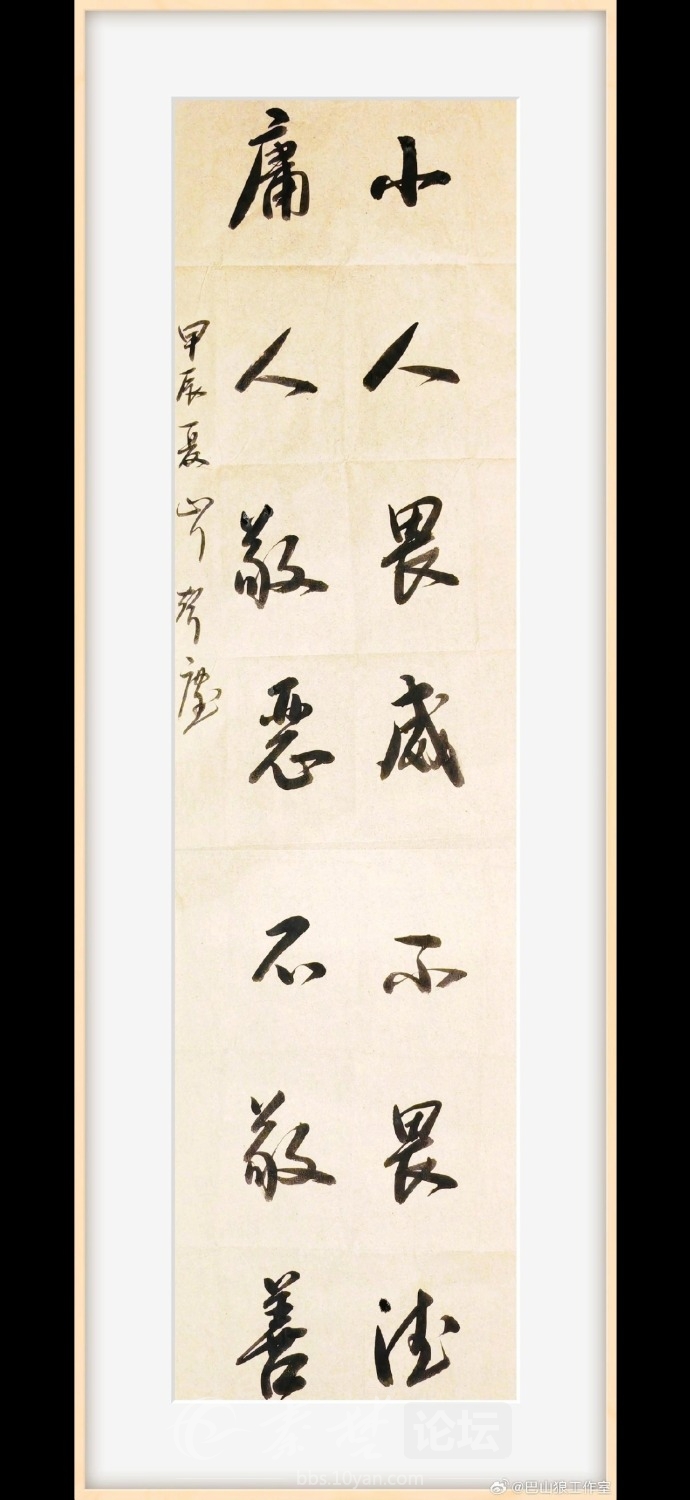 小人畏威不畏德
庸人敬恶不敬善
甲辰夏
论坛
bbs.10yan.com
@巴山狼工作室